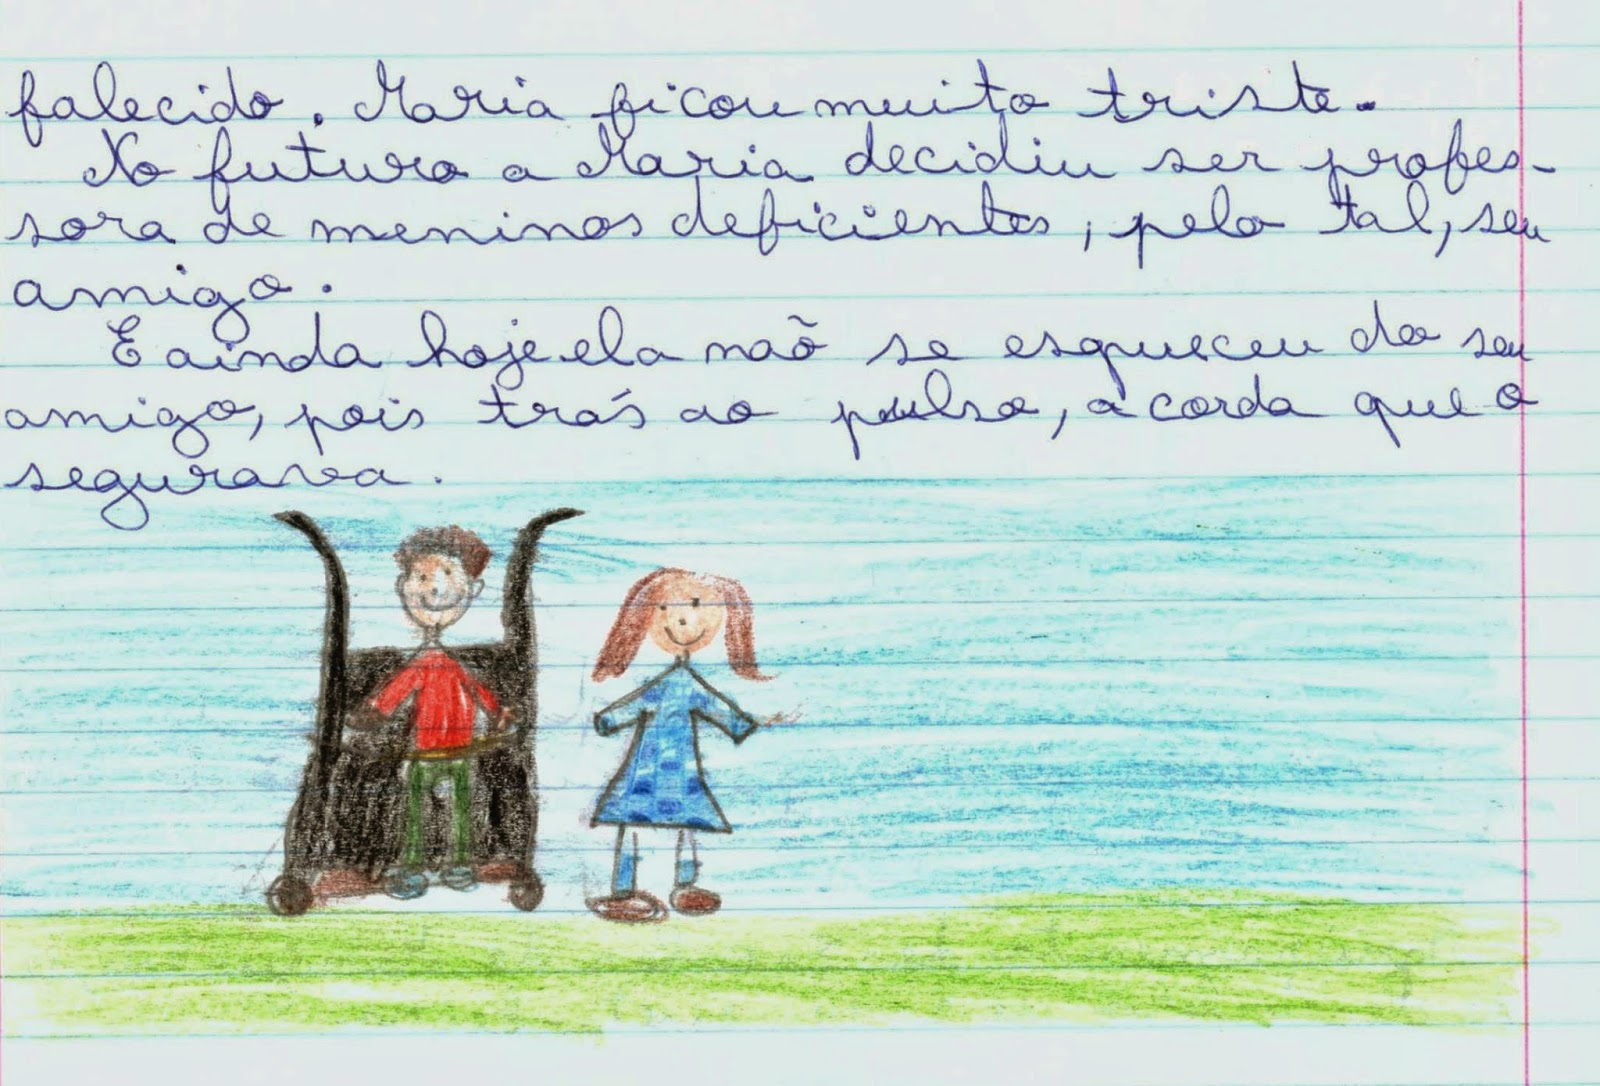 falecido. Maria ficou muito triste.
No futuro a Maria decidiu ser profes-
sora de meninos deficientes, pelo tal, seu
amigo.
E ainda hoje ela não se esqueceu do seu
amigo, pois trás ao pulso, a corda que o
segurava.